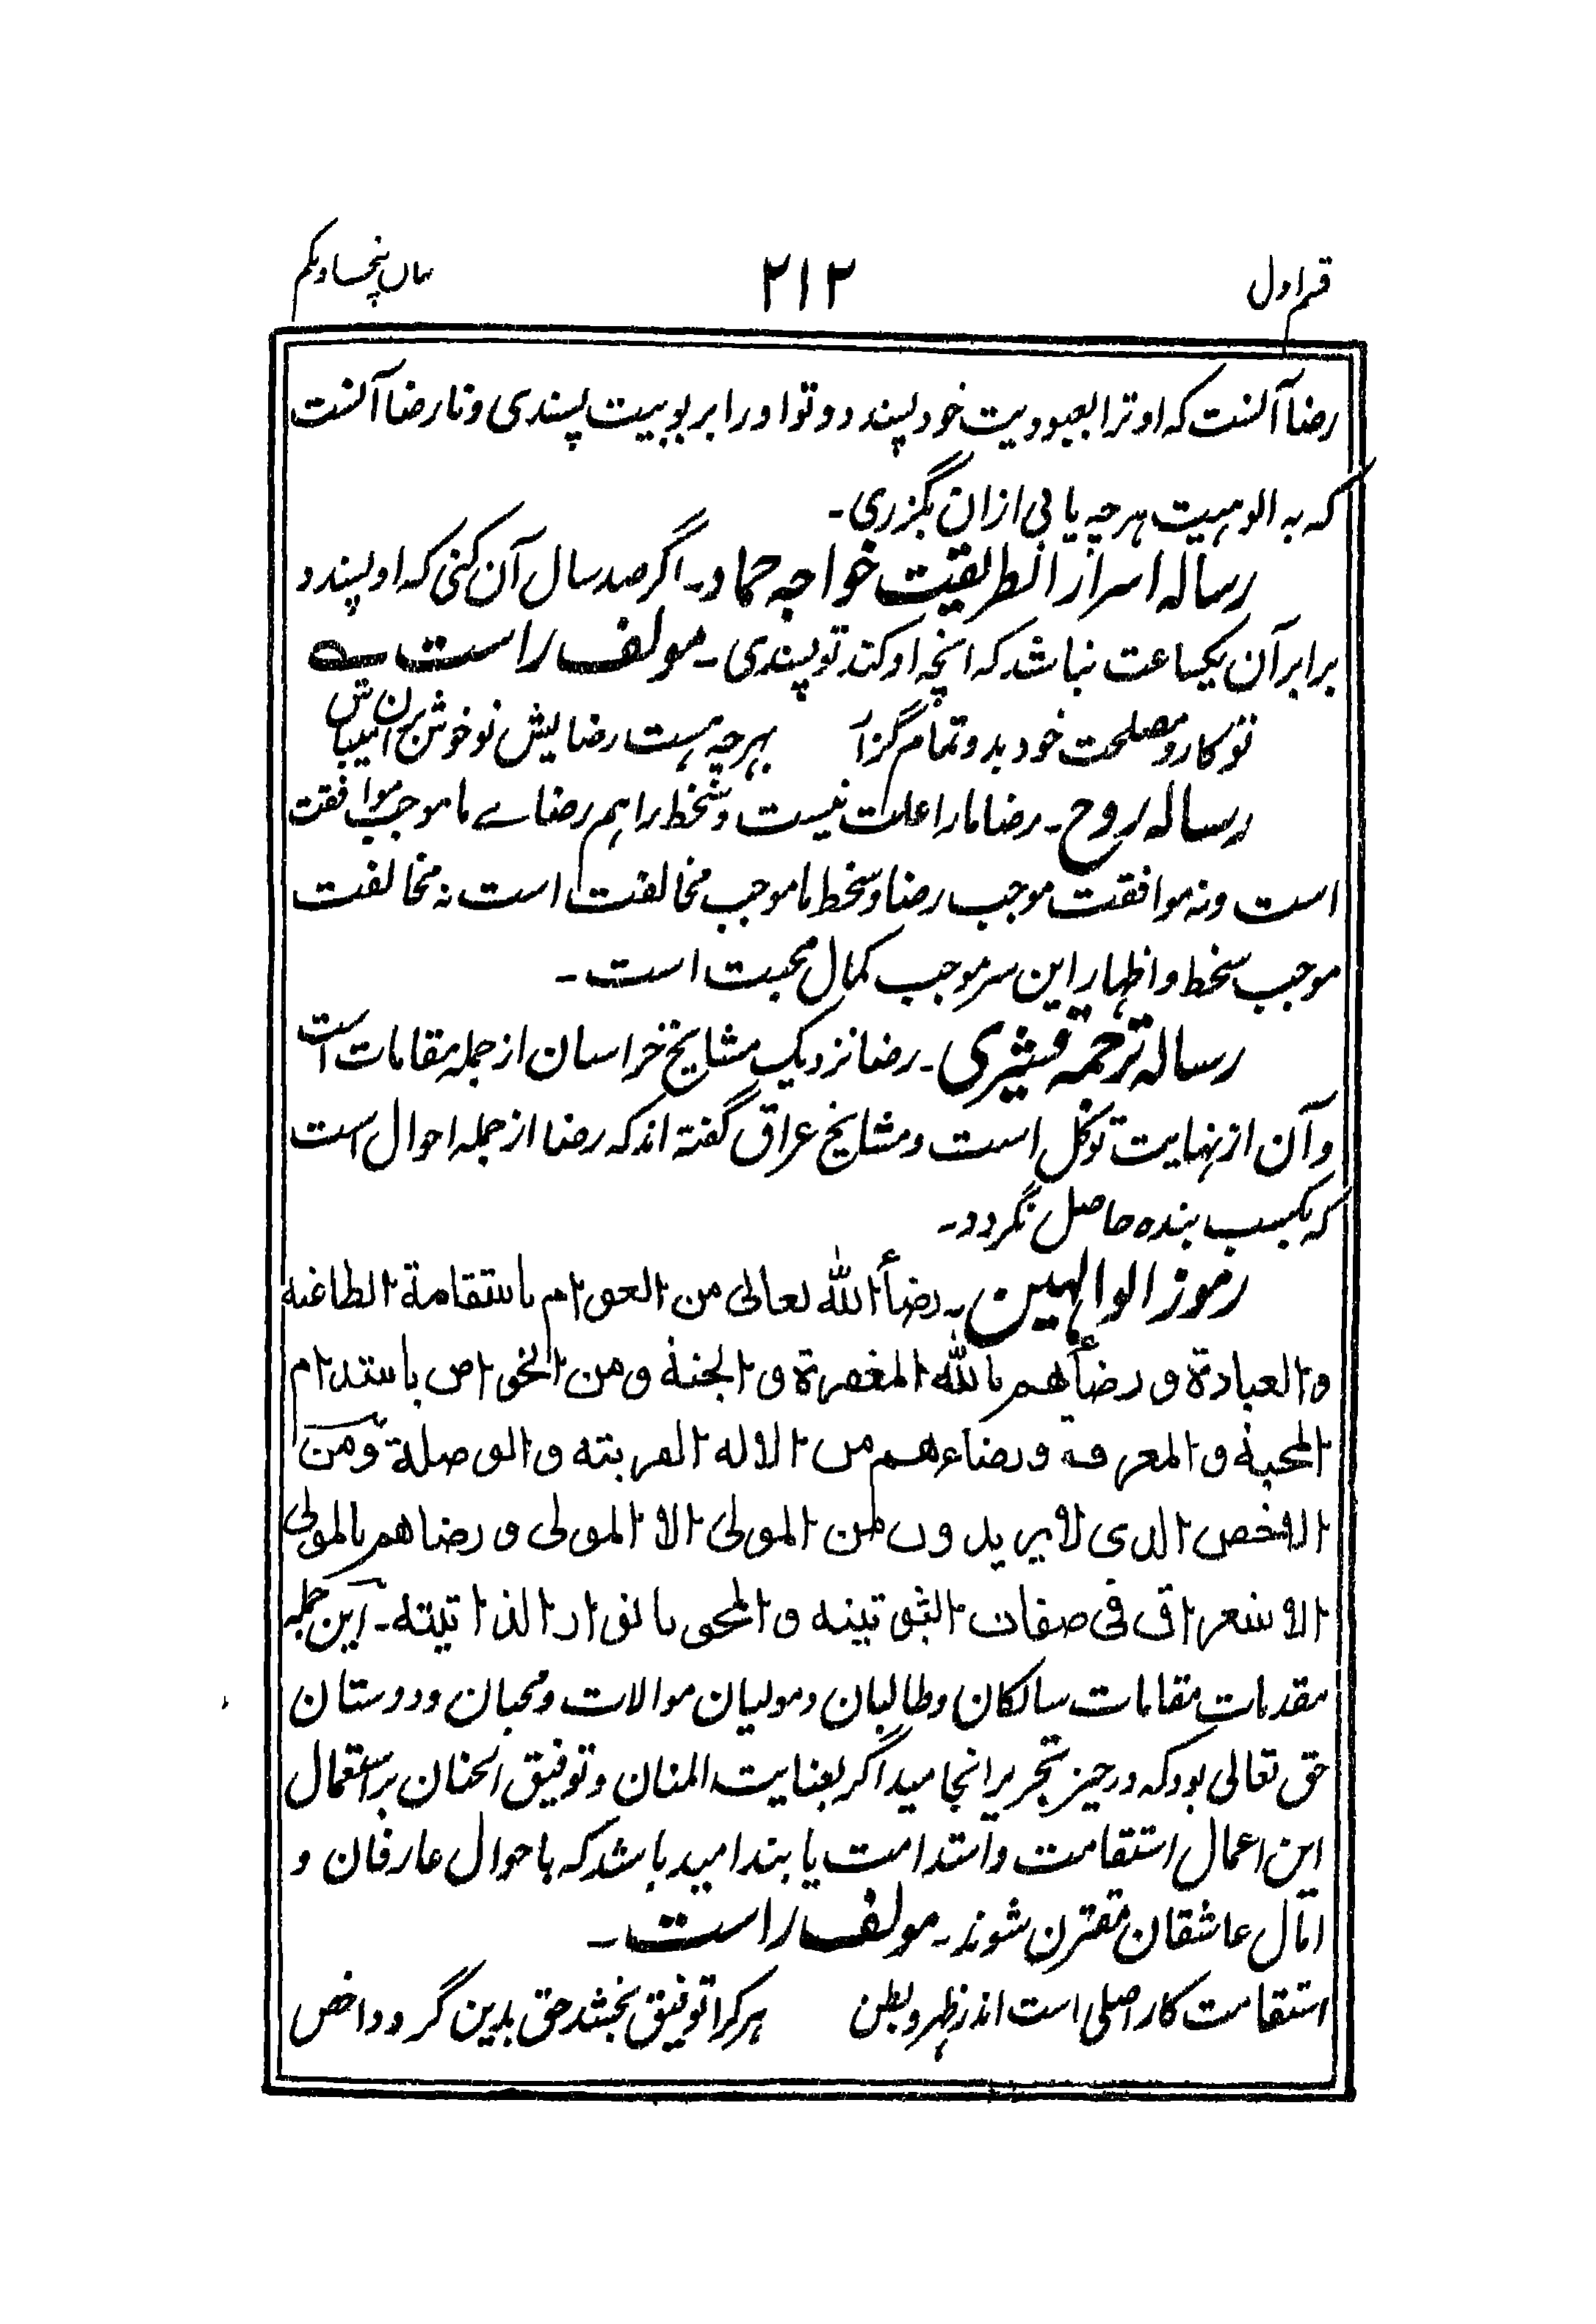 قسم اول
۲۱۲
بیان پنجاه و یکم
رضا آنست که او ترا بعبودیت خود پسندد و تو او را بربوبیت پسندی و نارضا آنست
که به الوهیت هرچه یابی ازان بگزری۔
رساله اسرار الطریقت خواجه حماد۔ اگر صد سال آن کنی که او پسندد
برابر آن یکساعت نباشد که آنچه او کند تو پسندی۔ مولف راست ے
تو کار و مصلحت خود بدو تمام گزار بهرچه هست رضایش تو خوش بران میباش
رساله روح۔ رضا ما را علت نیست و سخط را هم رضاے ما موجب موافقت
است و نه موافقت موجب رضا و سخط ما موجب مخالفت است نه مخالفت
موجب سخط و اظهار این سر موجب کمال محبت است۔
رساله ترجمه قشیری۔ رضا نزدیک مشایخ خراسان از جمله مقامات است
و آن از نهایت توکل است و مشایخ عراق گفته اند که رضا از جمله احوال است
که بکسب بنده حاصل نگردد۔
رموز الوالهین۔ رضأ الله تعالی من العوام باستقامة الطاعة
والعبادة و رضأهم بالله المغفرة و الجنة و من الخواص باستدام
المحبة و المعرفة و رضاءهم من الاله القربته و الوصلة و من
الاخص الذی لا یریدون من المولی الا المولی و رضاهم بالمولی
الاستغراق فی صفات الثبوتینه و المحو بانوار الذاتیته۔ این جمله
مقدمات مقامات سالکان و طالبان و مولیان موالات و محبان و دوستان
حق تعالی بود که در حیز تحریر انجامید اگر بعنایت المنان و توفیق الحنان بر استعمال
این اعمال استقامت و استدامت یابند امید باشد که باحوال عارفان و
آمال عاشقان مقترن شوند۔ مولف راست۔
استقامت کار اصلی است اندر ظهر و بطن هر کرا توفیق بخشد حق بدین گردد اخص